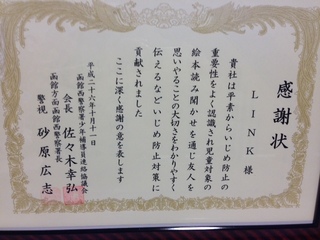 感謝状
LINK様
貴社は平素からいじめ防止の
重要性をよく認識され児童対象の
絵本読み聞かせを通じ友人を
思いやることの大切さをわかりやすく
伝えるなどいじめ防止対策に
貢献されました
ここに深く感謝の意を表します
平成二十六年十月十一日
函館西警察署少年補導員連絡協議会
会長 佐々木幸弘
函館方面函館西警察署長
警視 砂原広志